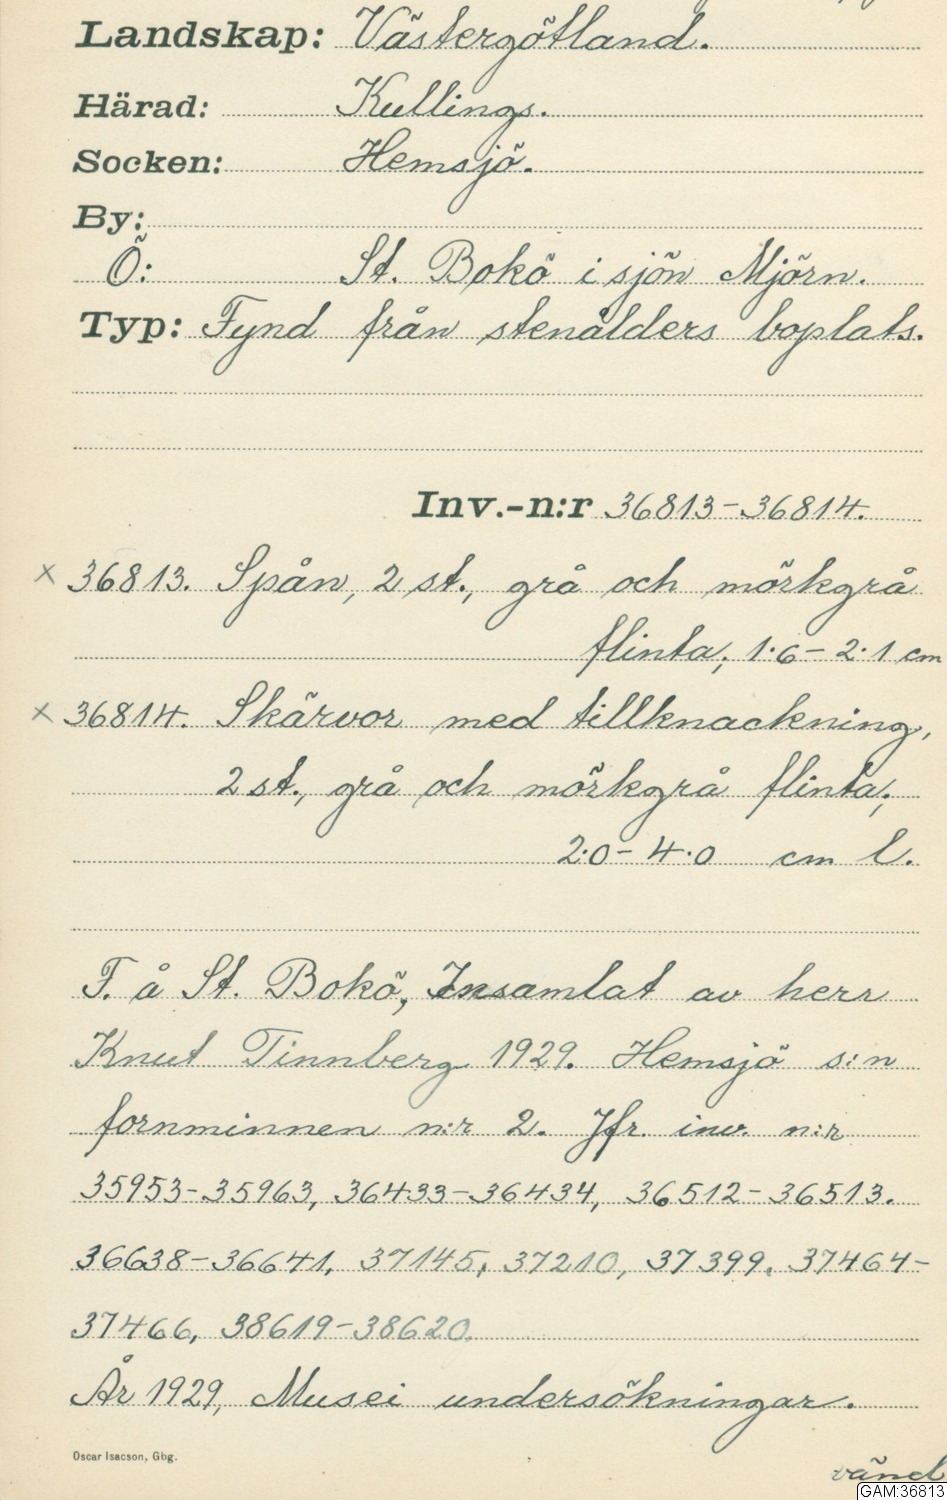 Landskap: Västergötland.
Härad: Kullings.
Socken: Hemsjö.
By:
Ö: St. Bokö i sjön Mjörn.
Typ: Fynd från stenålders boplats.
Inv.-n:r 36813-36814.
x 36813. Spån, 2 st., grå och mörkgrå
flinta; 1·6-2·1 cm
x 36814. Skärvor med tillknackning,
2 st., grå och mörkgrå flinta;
2·0-4·0 cm l.
F. å St. Bokö, Insamlat av herr
Knut Tinnberg 1929. Hemsjö s:n
fornminnen n:r 2. Jfr. inv. n:r
35953-35963, 36433-36434, 36512-36513.
36638-36641, 37145, 37210, 37399, 37464-
37466, 38619-38620.
År 1929, Musei undersökningar.
Oscar Isacson, Gbg.
vänd
GAM:36813